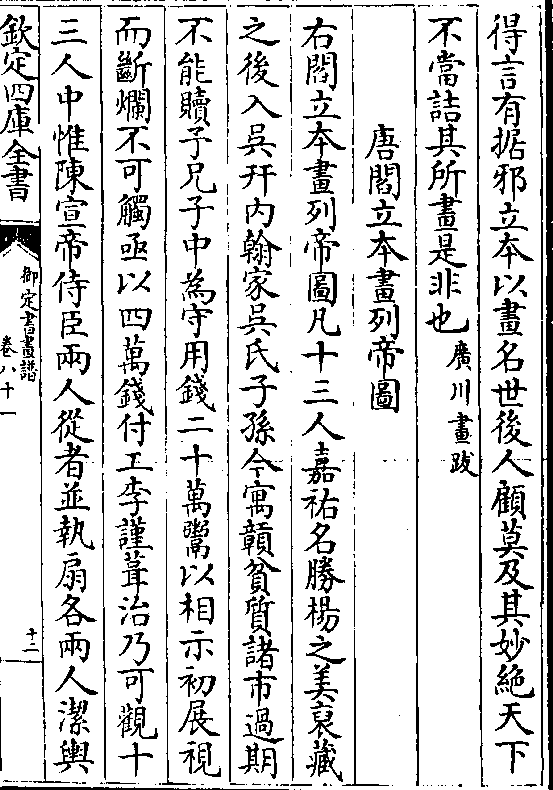 得言有据邪立本以畫名世後人顧莫及其妙絶天下
不當詰其所畫是非也廣川畫跋
唐閻立本畫列帝圖
右閻立本畫列帝圖凡十三人嘉祐名勝楊之美裒藏
之後入吳幵内翰家吳氏子孫今寓贛貧質諸市過期
不能贖予兄子中為守用錢二十萬鬻以相示初展視
而斷爛不可觸亟以四萬錢付工李謹葺治乃可觀十
三人中惟陳宣帝侍臣兩人從者並執扇各兩人潔輿
欽定四庫全書
御定書畫譜
卷八十一
十二